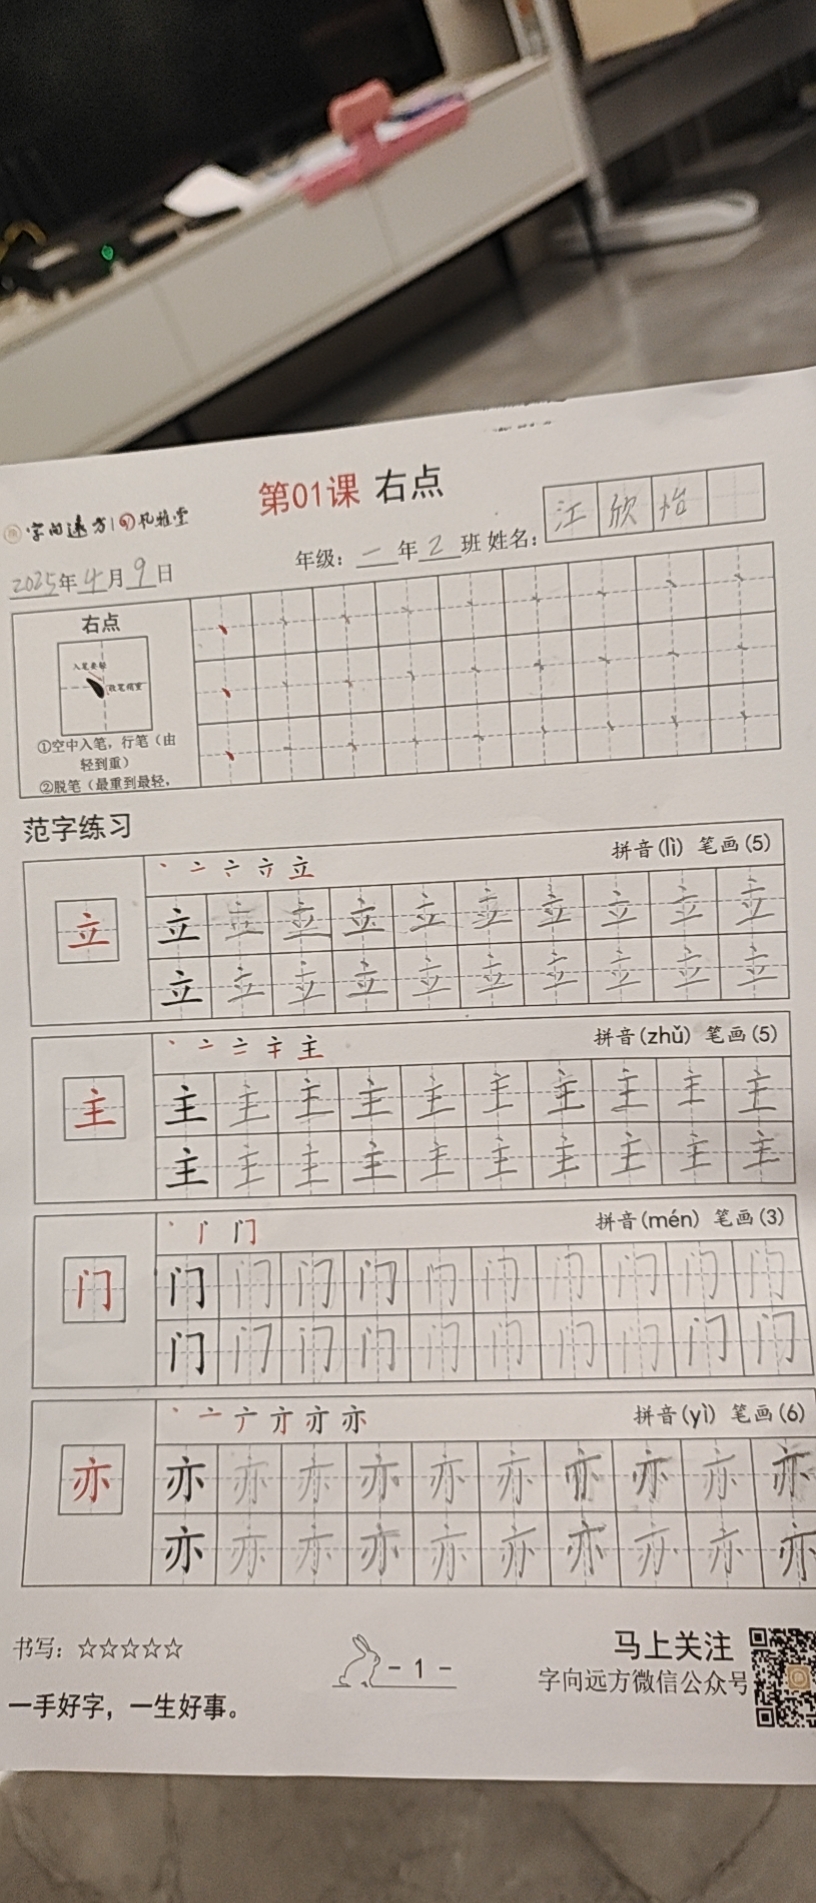 第01课 右点
字向远方 | 礼雅堂
江欣怡
年级：二年2班 姓名：
2025年4月9日
右点
入笔要轻
段笔稍重
①空中入笔，行笔（由
轻到重）
②脱笔（最重到最轻，
范字练习
丶 亠 立 拼音(lì) 笔画(5)
立 立 立 立 立 立 立 立 立 立 立
立 立 立 立 立 立 立 立 立 立
丶 亠 主 拼音(zhǔ) 笔画(5)
主 主 主 主 主 主 主 主 主 主 主
主 主 主 主 主 主 主 主 主 主
丶 门 拼音(mén) 笔画(3)
门 门 门 门 门 门 门 门 门 门 门
门 门 门 门 门 门 门 门 门 门
丶 亠 亦 拼音(yì) 笔画(6)
亦 亦 亦 亦 亦 亦 亦 亦 亦 亦 亦
亦 亦 亦 亦 亦 亦 亦 亦 亦 亦
书写：☆☆☆☆☆
- 1 -
马上关注
字向远方微信公众号
一手好字，一生好事。